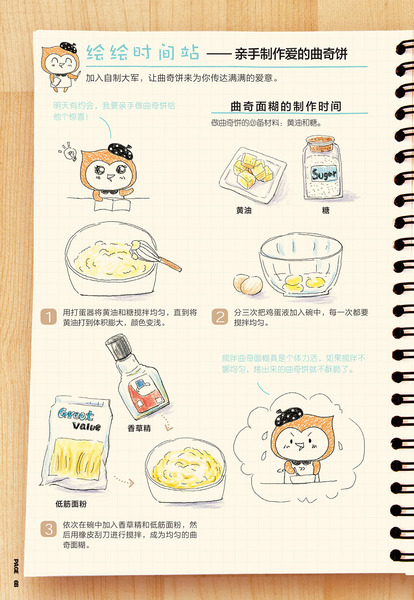 绘绘时间站 —— 亲手制作爱的曲奇饼
加入自制大军，让曲奇饼来为你传达满满的爱意。
明天有约会，我要亲手做曲奇饼给
他个惊喜！
曲奇面糊的制作时间
做曲奇饼的必备材料：黄油和糖。
Sugar
黄油
糖
1 用打蛋器将黄油和糖搅拌均匀，直到将
黄油打到体积膨大，颜色变浅。
2 分三次把鸡蛋液加入碗中，每一次都要
搅拌均匀。
搅拌曲奇面糊真是个体力活，如果搅拌不
够均匀，烤出来的曲奇饼就不酥脆了。
Great
Value
香草精
低筋面粉
3 依次在碗中加入香草精和低筋面粉，然
后用橡皮刮刀进行搅拌，成为均匀的曲
奇面糊。